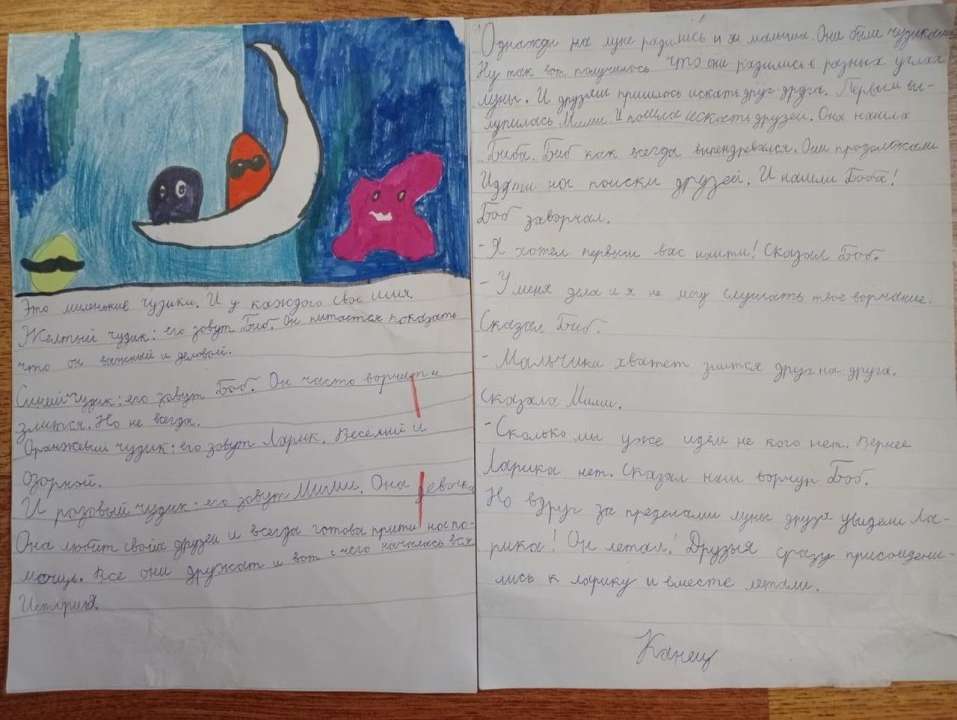 Это маленькие чузики. И у каждого свое имя.
Желтый чудик: его зовут Биб. Он питается показать
что он важный и деловой.
Синий чудик: его зовут Боб. Он часто ворчит и
злиться. Но не всегда.
Оранжевый чудик: его зовут Ларик. Веселый и
озорной.
И розовый чудик: его зовут Мими. Она девочка
Она любит своих друзей и всегда готова прити на по-
мощь. Все они дружат и вот с чего началась вся
История.
Однажды на луне радились и за малыша. Они были чудиками
Ну так вот получилось что они радились в разных углах
луны. И друзям пришлось искать друг друга. Первым вы-
лупилась Мими и пошла искать друзей. Она нашла
Биба. Биб как всегда выпендревался. Они продолжали
Идти на поиски друзей. И нашли Боба!
Боб заворчал.
- Я хотел первым вас найти! Сказал Боб.
- У меня дела и я не могу слушать твое ворчание.
Сказал Биб.
- Мальчики хватет злится друг на друга.
сказала Мими.
- Сколько мы уже идем не кого нет. Вернее
Ларика нет. Сказал наш ворчун Боб.
Но вдруг за пределами луны друзя увидели Ла-
рика! Он летал! Друзья сразу присоедени-
лись к ларику и вместе летали.
Конец